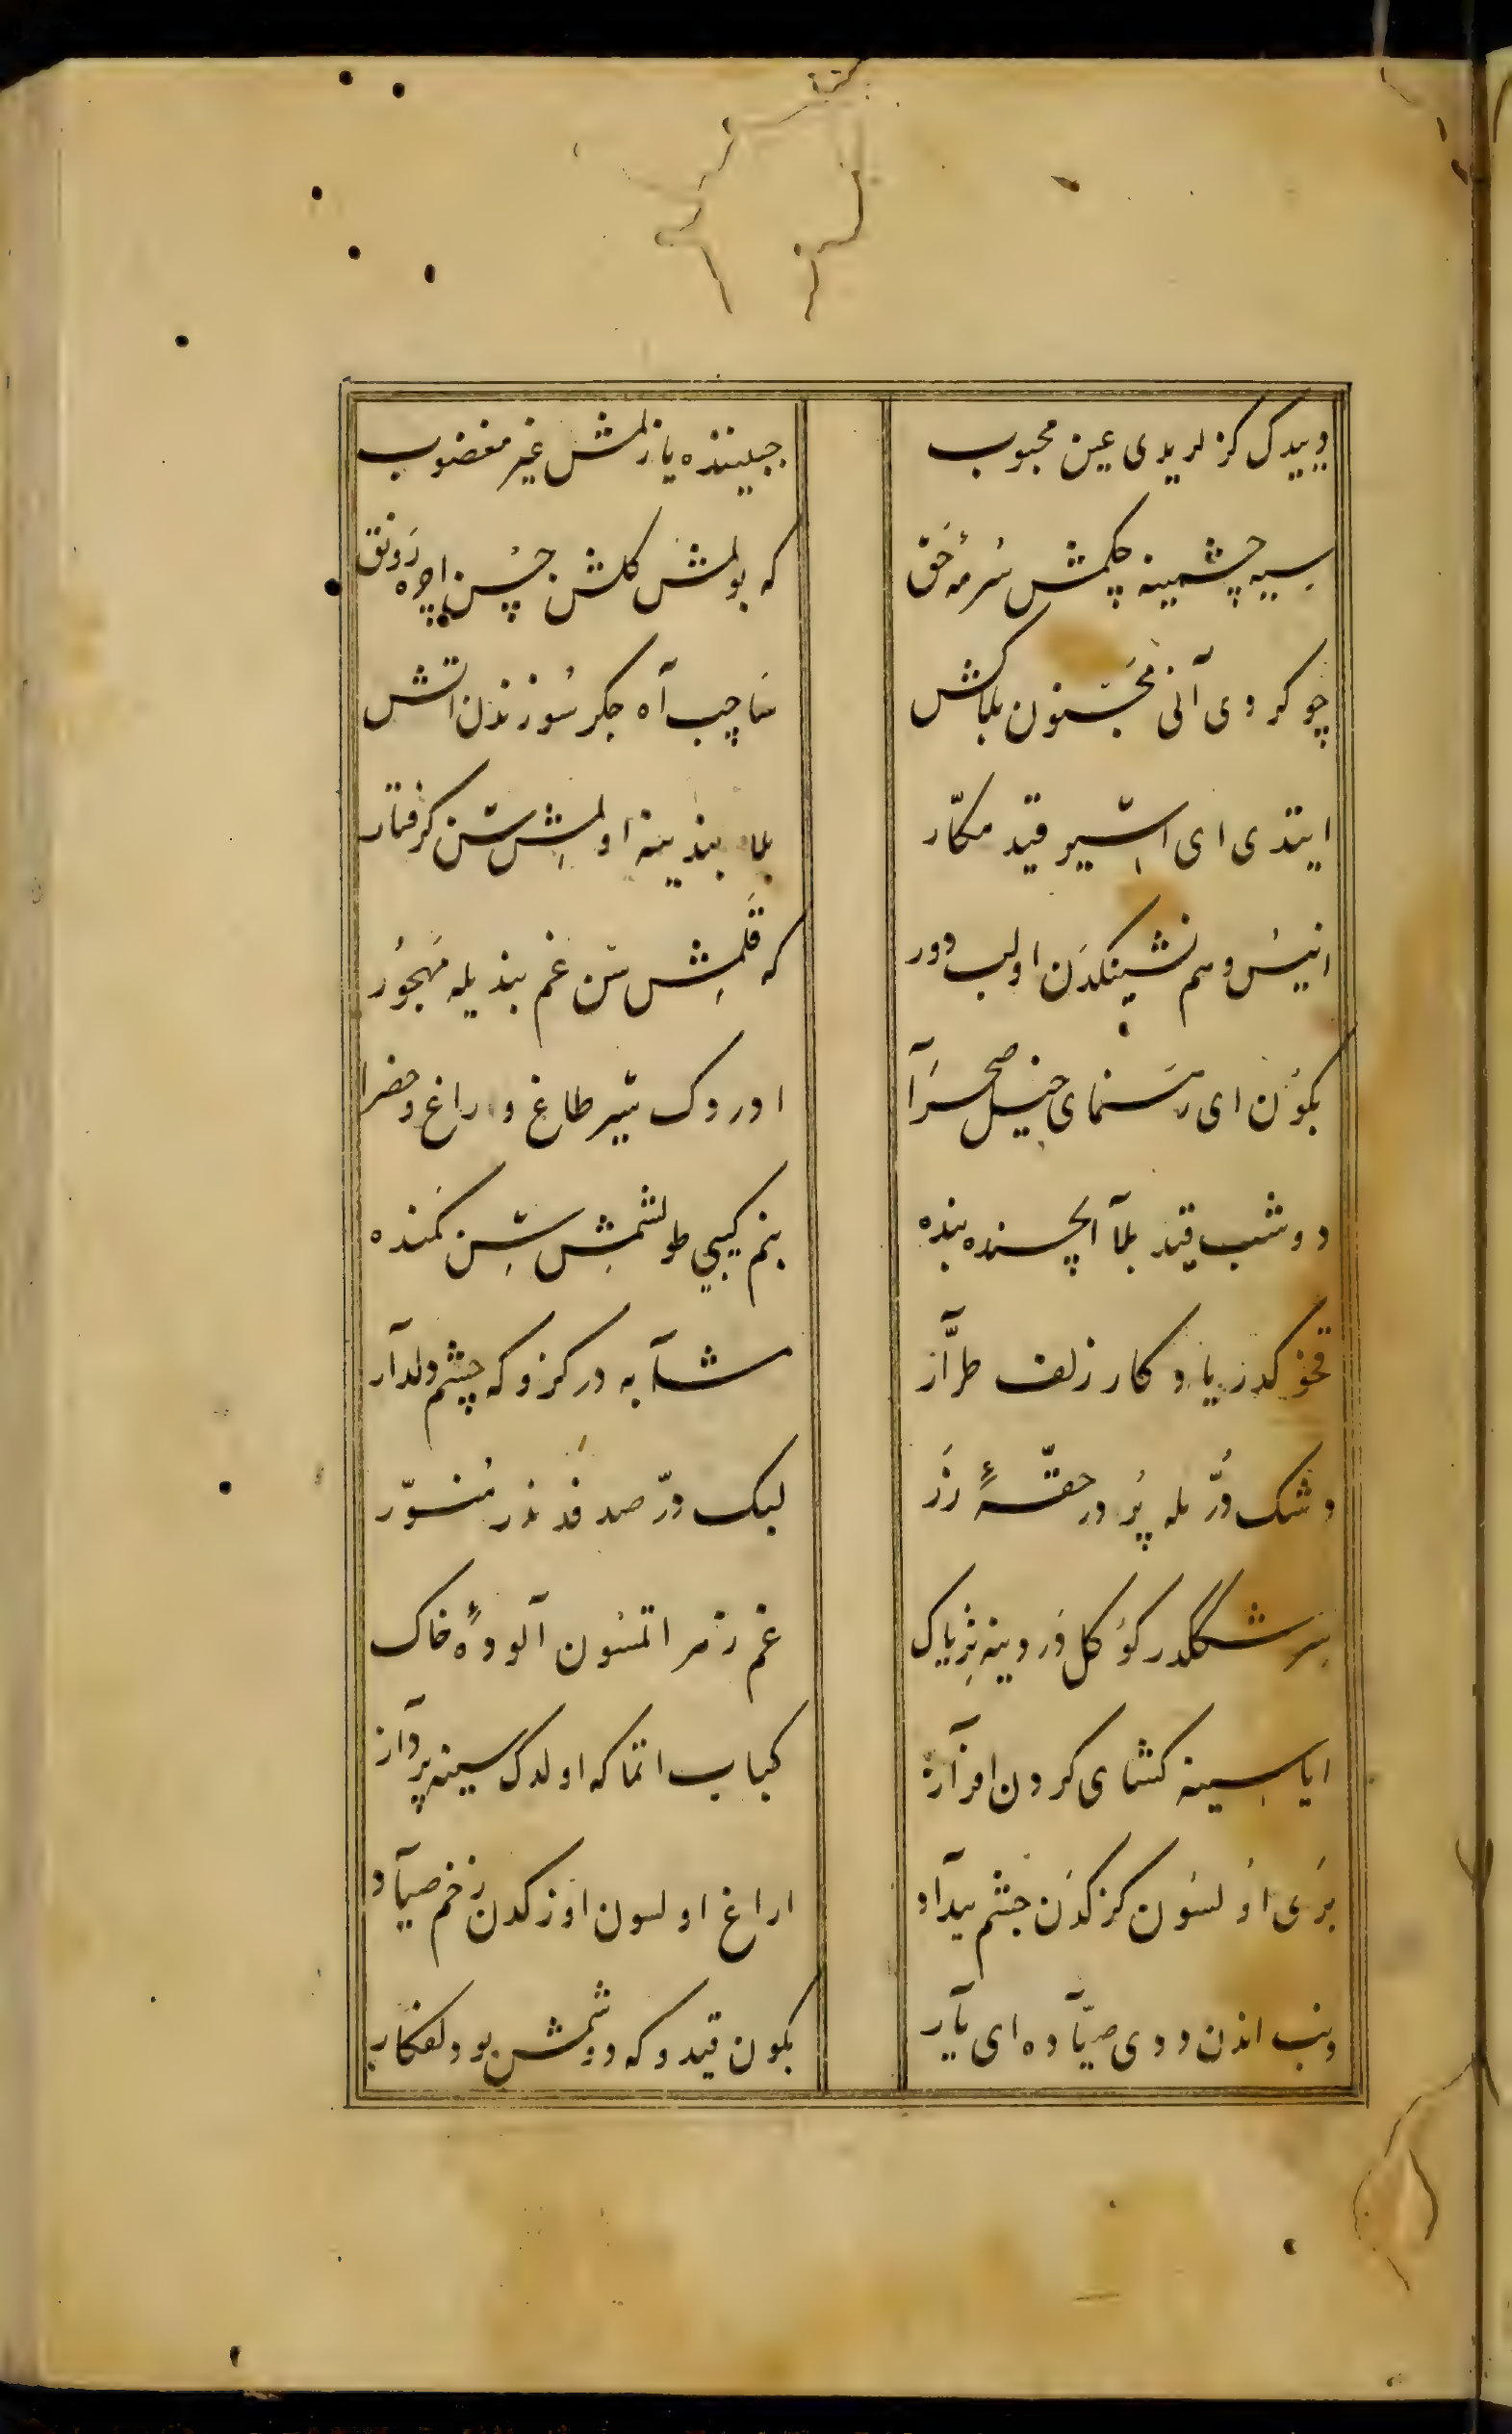 دییدک کزلریدی عین محبوب جبیننده یازلمش غیر مغضوب
سیه چشمینه چکمش سرمهٔ حق که بولمش کلشن حسن اچره رونق
چو کردی آنی مجنون بلاکش ساچب آه جکر سوزندن اتش
ایتدی ای اسیر قید مکّار بلا بندینه اولمش سن کرفتار
انیس و هم نشینکدن اولب دور که قلمش سن غم بندیله مهجور
بکون ای رهنمای خیل صحرآ اوردک تیر طاغ و راغ و خضرا
دوشب قید بلآ ایچسنده بنده بنم کیبی طولشمش سن کمنده
کدر یادکار زلف طرّآز مشآبه در کزوکه چشم دلدآر
دشک درّ له پر در حقهٔ زر لبک درّ صدفدندر منوّر
سرشگلدر کوکل دردینه تریاک غم زهر اتمسون آلودهٔ خاک
ایا سینه کشای کردون افرآز کباب اتما که اولدک سینه پردآز
بری اولسون کزکدن چشم بیدآد اراغ اولسون اوزکدن زخم صیآد
دینب اندن ددی صیّآده ای یآر بکون قیدوکه دوشمش بو دلفکار